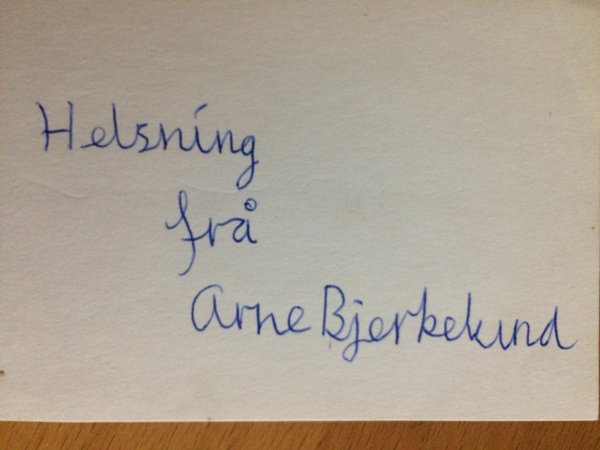 Helsning
frå
Arne Bjerkekind